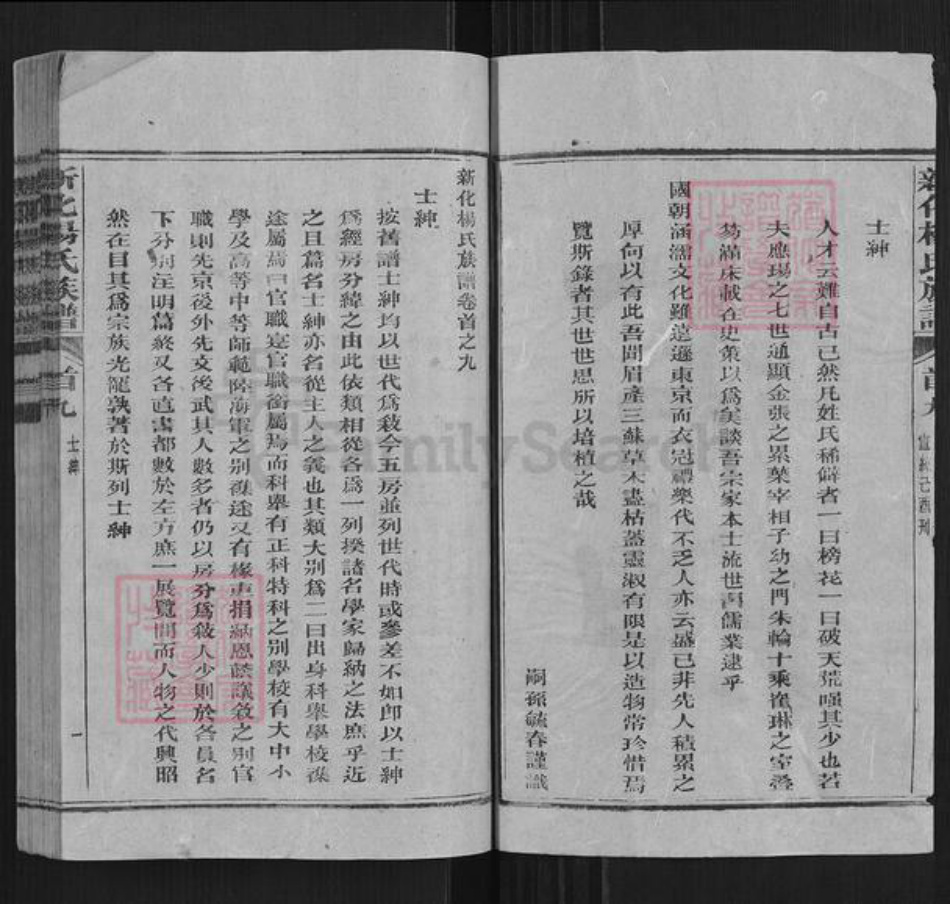 新化楊氏族譜
首九
宣統己酉刊
士紳
人才云難自古已然凡姓氏稀僻者一曰榜花一曰破天荒嘆其少也若
夫應瑒之七世通顯金張之累葉宰相子幼之門朱輪十乘崔琳之室疊
笏滿床載在史策以為美談吾宗家本士流世為儒業逮乎
國朝涵濡文化雖遠遜東京而衣冠禮樂代不乏人亦云盛已非先人積累之
厚何以有此吾聞眉產三蘇草木盡枯蓋靈淑有限是以造物常珍惜焉
覽斯錄者其世世思所以培植之哉
嗣孫毓春謹識
新化楊氏族譜卷首之九
士紳
按舊譜士紳均以世代為敘今五房並列世代時或參差不如即以士紳
為經房分緯之由此依類相從各為一列揆諸名學家歸納之法庶乎近
之且篇名士紳亦名從主人之義也其類大別為二曰出身科舉學校襍
途屬焉曰官職寔官職銜屬焉而科舉有正科特科之別學校有大中小
學及高等中等師範陸海軍之別襍途又有椽吏捐納恩廕議敘之別官
職則先京後外先文後武其人數多者仍以房分為敘人少則於各員名
下分別注明篇終又各直書都數於左方庶一展覽間而人物之代興昭
然在目其為宗族光寵孰著於斯列士紳
新化楊氏族譜
首九
士紳
一
FamilySearch